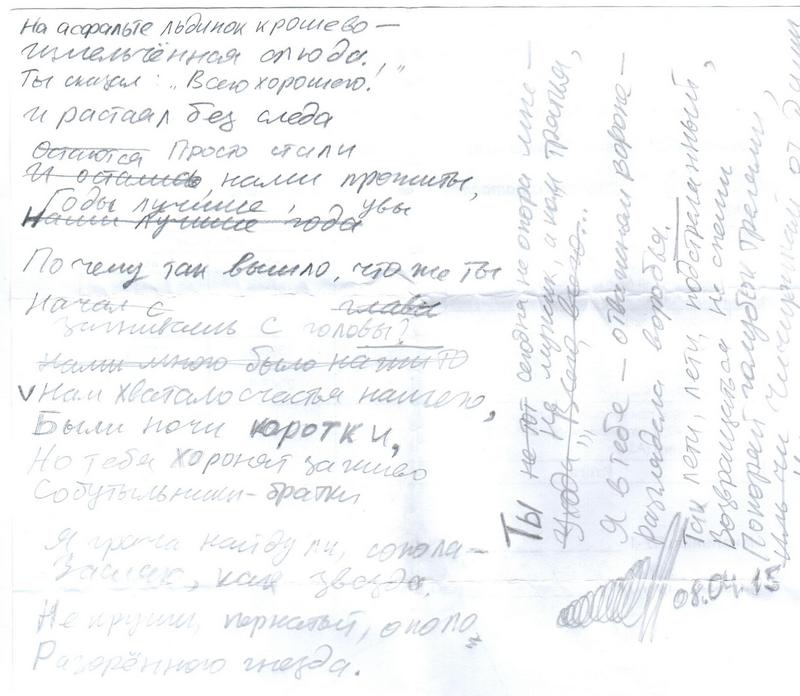 На асфальте льдинок крошево —
измельчённая слюда.
Ты сказал: „Всего хорошего!"
и растаял без следа
Остаются Просто стали
И остались нами прожиты,
Годы лучшие, увы
Наши лучшие года
Почему так вышло, что же ты
Начал с главы
загниваешь с головы?
нами много было
Нам хватало счастья нашего,
Были ночи коротки,
Но тебя хоронят заживо
Собутыльники-братки
Я грача найду ли, сокола —
Засиял, как звезда.
Не кружи, пернатый, около
Разорённого гнезда.
Ты не тот сегодня не опора мне —
Не мужик, а как тряпка,
Уходи „Всего всего...
Я в тебе — отважном вороне —
разглядела воробья.
Так лети, лети, подстреленный,
Возвращаться не спеши
Покоряй голубок трелями,
чирикай от души
08.04.15